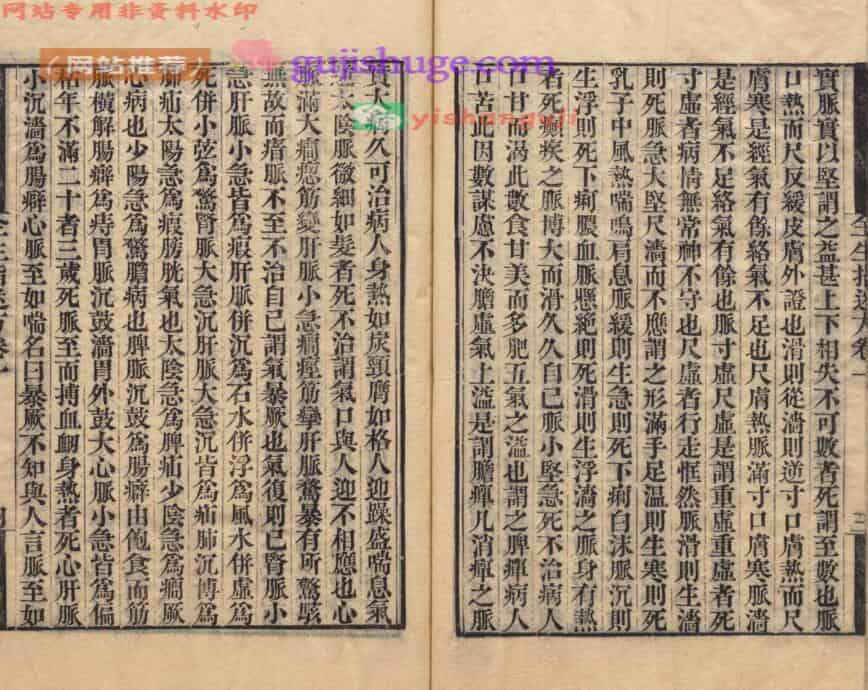 网站专用非资料水印
(网站推荐)
gujishuge.com
yishanguji
實脈實以堅謂之益甚上下相失不可數者死謂至數也脈
口熱而尺反緩皮膚外證也滑則從濇則逆寸口膚熱而尺
膚寒是經氣有餘絡氣不足也尺膚熱脈滿寸口膚寒脈濇
是經氣不足絡氣有餘也脈寸虛尺虛是謂重虛重虛者死
寸虛者病情無常神不守也尺虛者行走恇然脈滑則生濇
則死脈急大堅尺濇而不應謂之形滿手足溫則生寒則死
乳子中風熱喘鳴肩息脈緩則生急則死下痢白沫脈沉則
生浮則死下痢膿血脈懸絕則死滑則生浮濇之脈身有熱
者死癲疾之脈博大而滑久久自已脈小堅急死不治病人
口甘而渴此數食甘美而多肥五氣之溢也謂之脾癉病人
口苦此因數謀慮不決膽虛氣上溢是謂膽癉凡消癉之脈
大病久可治病人身熱如炭頸膚如格人迎躁盛喘息氣
太陰脈微細如髮者死不治謂氣口與人迎不相應也心
脈滿大癇瘛筋攣肝脈小急癇瘛筋攣肝脈騖暴有所驚駭
無故而瘖脈不至不治自已謂氣暴厥也氣復則已腎脈小
急肝脈小急皆爲瘕肝脈併沉爲石水併浮爲風水併虛爲
死併小弦爲驚腎脈大急沉肝脈大急沉皆爲疝肺沉博爲
肺疝太陽急爲瘕膀胱氣也太陰急爲脾疝少陰急爲癇厥
心病也少陽急爲驚膽病也脾脈沉鼓爲腸癖由飽食而筋
脈橫解腸癖爲痔胃脈沉鼓濇胃外鼓大心脈小急皆爲偏
枯年不滿二十者三歲死脈至而搏血衂身熱者死心肝脈
小沉濇爲腸癖心脈至如喘名曰暴厥不知與人言脈至如